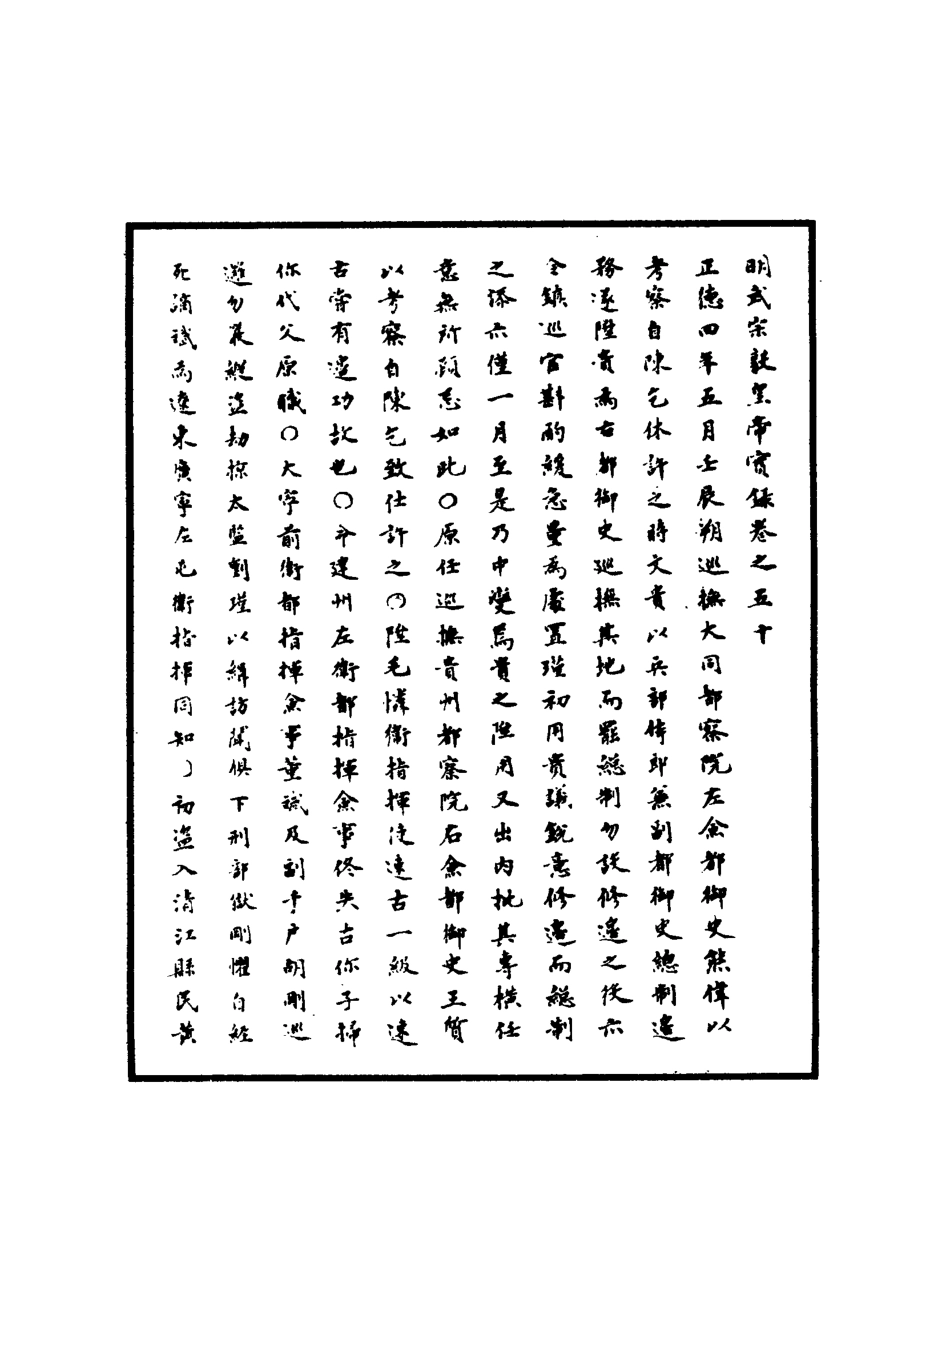 明武宗毅皇帝實錄卷之五十
正德四年五月壬辰朔巡撫大同都察院左僉都御史熊偉以
考察自陳乞休許之時文貴以兵部侍郎兼副都御史總制邊
務遂陞貴為右都御史巡撫其地而罷總制勿設修邊之役亦
令鎮巡官斟酌緩急量為處置瑾初用貴議銳意修邊而總制
之添亦僅一月至是乃中變焉貴之陞用又出內批其專橫任
意無所顧忌如此〇原任巡撫貴州都察院右僉都御史王質
以考察自陳乞致仕許之〇陞毛憐衛指揮使速古一級以速
古嘗有邊功故也〇命建州左衛都指揮僉事佟失古你子掃
你代父原職〇大寧前衛都指揮僉事董誠及副千戶胡剛巡
邏勿嚴縱盜劫掠太監劉瑾以緝訪聞俱下刑部獄剛懼自經
死謫誠為遼東廣寧左屯衛指揮同知〇初盜入清江縣民黃